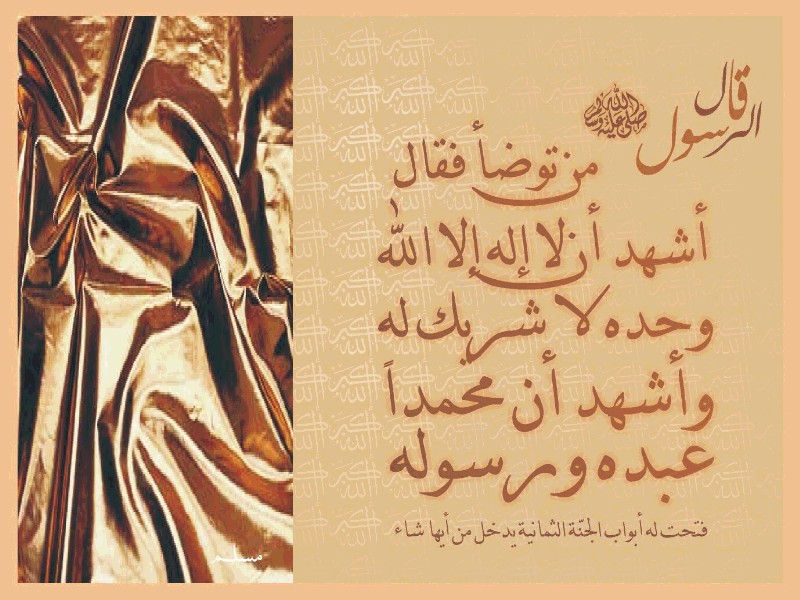 قال الرسول صلى الله عليه وسلم
من توضأ فقال
أشهد أن لا إله إلا الله
وحده لا شريك له
وأشهد أن محمداً
عبده ورسوله
فتحت له أبواب الجنّة الثمانية يدخل من أيها شاء
مسلم